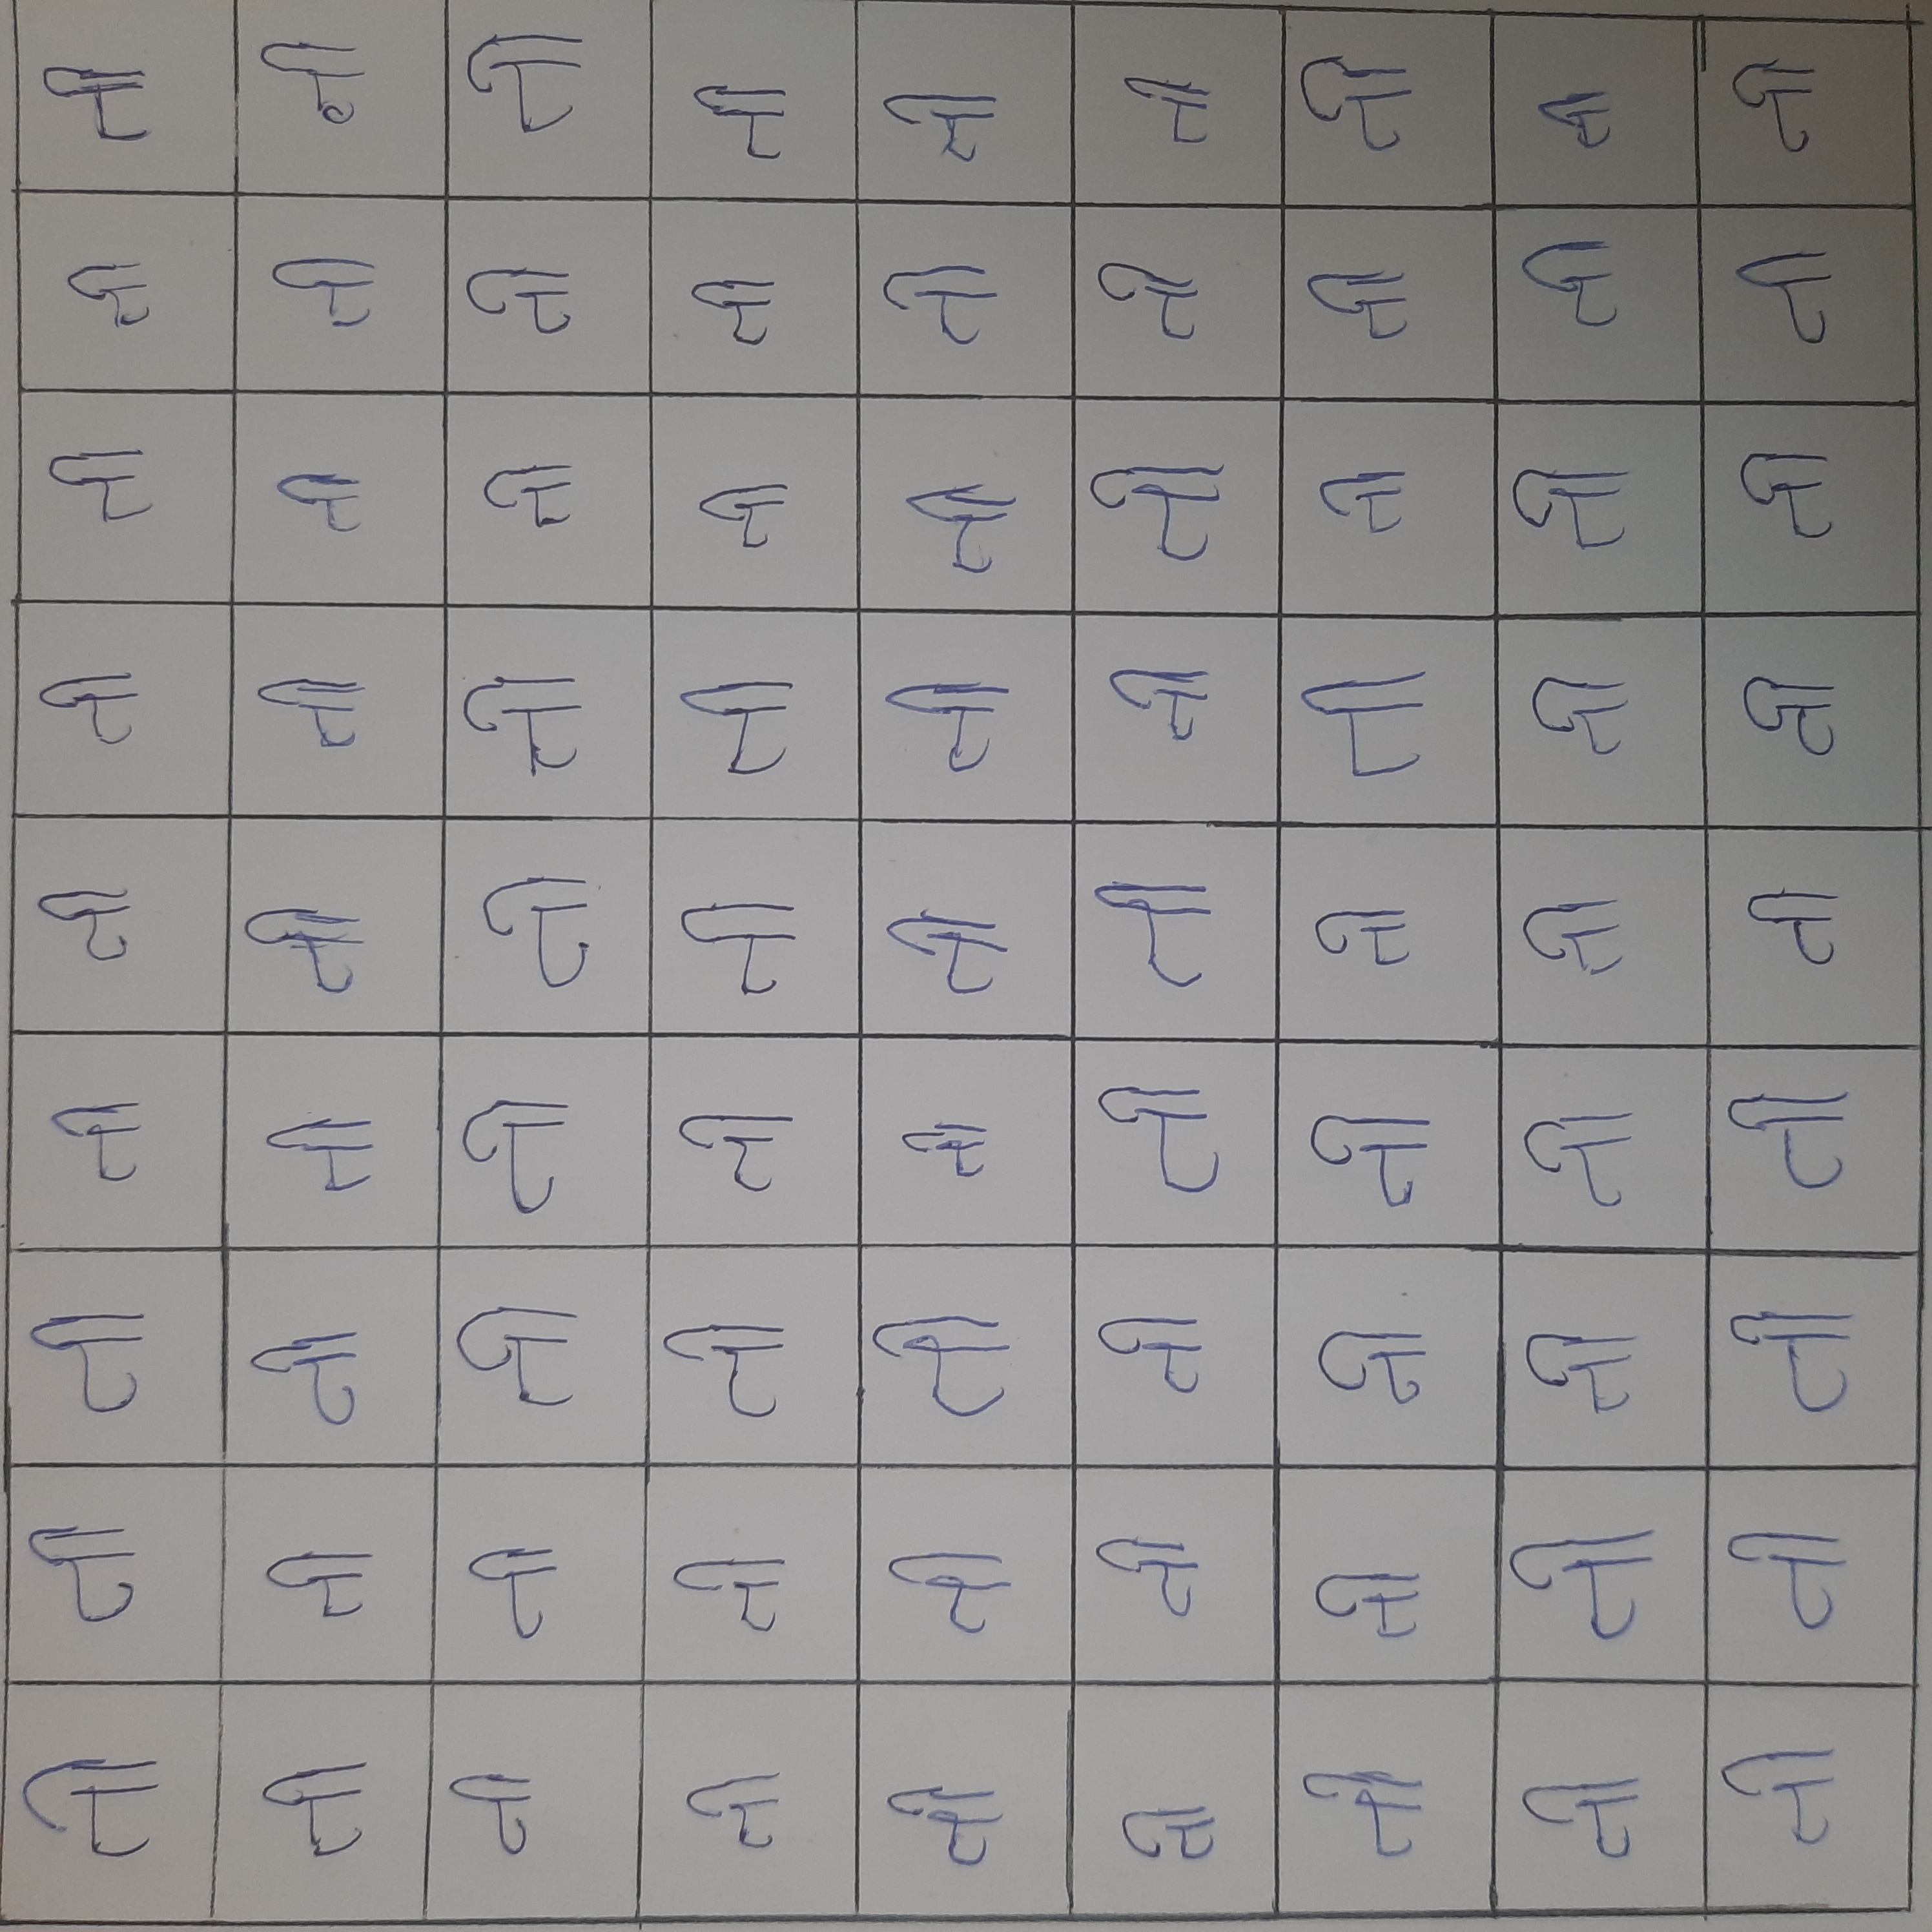 ती ती ती ती ती ती ती ती ती
ती ती ती ती ती ती ती ती ती
ती ती ती ती ती ती ती ती ती
ती ती ती ती ती ती ती ती ती
ती ती ती ती ती ती ती ती ती
ती ती ती ती ती ती ती ती ती
ती ती ती ती ती ती ती ती ती
ती ती ती ती ती ती ती ती ती
ती ती ती ती ती ती ती ती ती